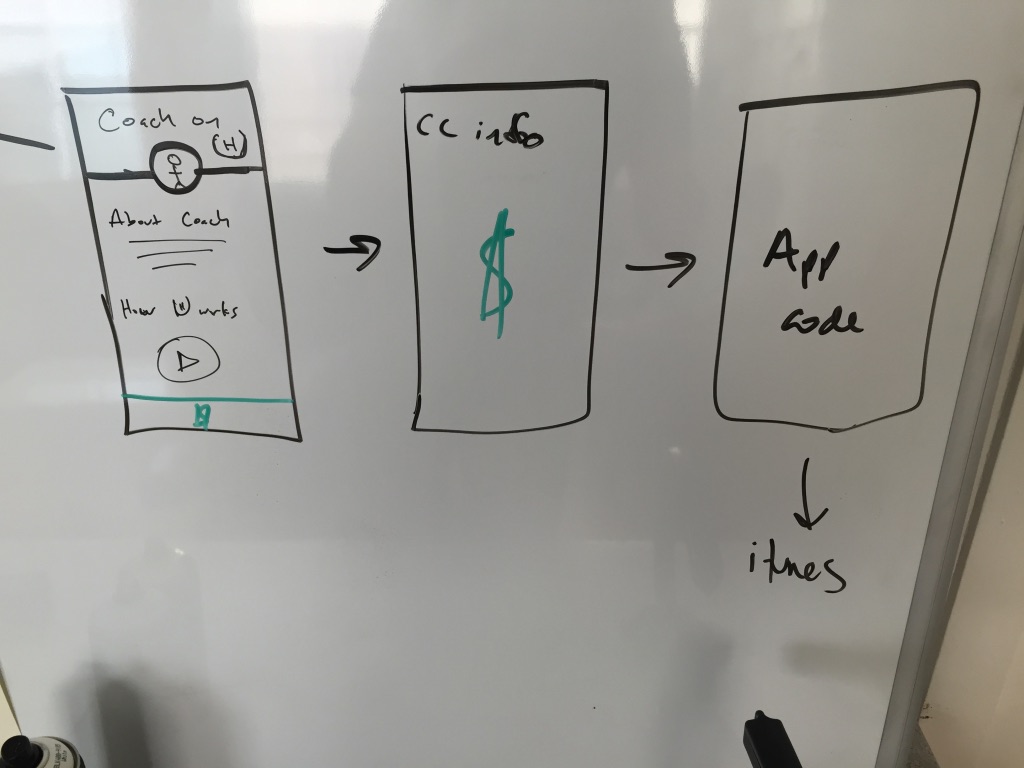 Coach on
(H)
About Coach
How Works
CC info
$
App
code
itunes